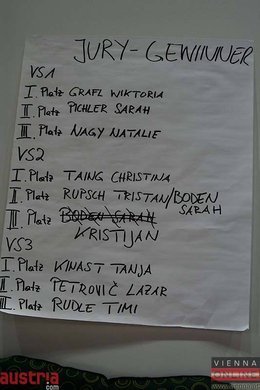 JURY-GEWINNER
VS1
I. Platz GRAFL WIKTORIA
II. Platz PICHLER SARAH
III. Platz NAGY NATALIE
VS2
I. Platz TAING CHRISTINA
II. Platz RUPSCH TRISTAN/BODEN SARAH
III. Platz BODEN SARAH
KRISTIJAN
VS3
I. Platz KINAST TANJA
II. Platz PETROVIČ LAZAR
III. Platz RUDLE TIMI
austria.com
VIENNA ONLINE